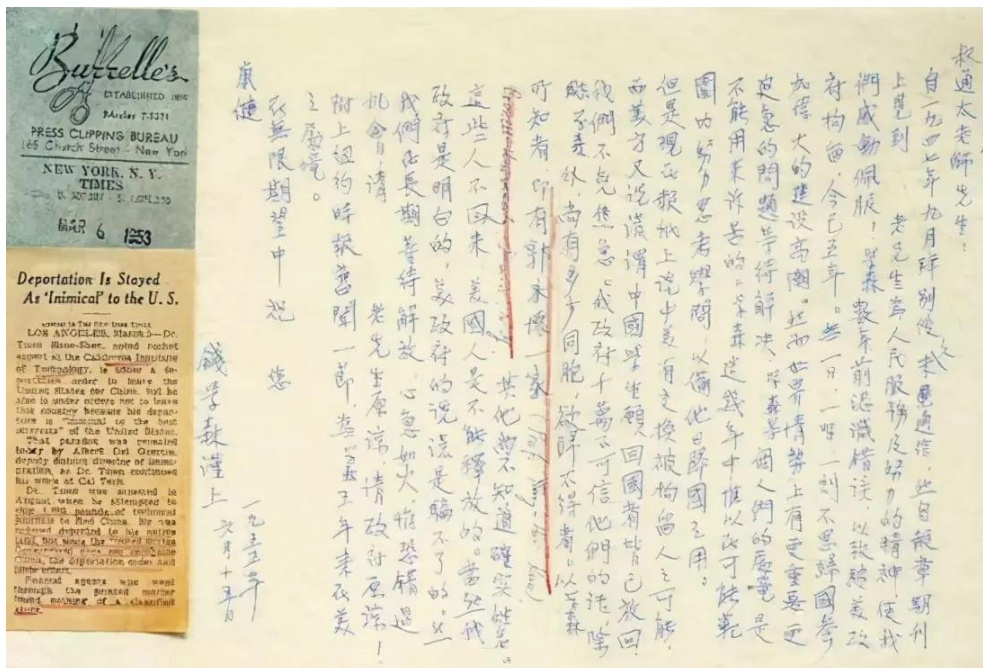 Burrelle's
ESTABLISHED 1888
BArclay 7-5371
PRESS CLIPPING BUREAU
165 Church Street - New York
NEW YORK, N. Y.
TIMES
MAR 6 1953
Deportation Is Stayed
As 'Inimical' to the U. S.
LOS ANGELES, March 5—Dr.
Tsien Hsue-Shen, noted rocket
expert at the California Institute
of Technology, is under a de-
portation order to leave the
United States for China. But he
also is under orders not to leave
this country because his depar-
ture is "inimical to the best
interests" of the United States.
That paradox was
today by Albert Del Guercio,
deputy district director of immi-
gration, as Dr. Tsien continued
his work at Cal Tech.
Dr. Tsien was arrested in
August when he attempted to
ship 1,800 pounds of technical
journals to Red China. He was
ordered deported to his native
land, but since the United States
Government does not recognize
China, the deportation order
Federal agents who went
through the printed matter
found nothing of a classified
叔通太老師先生：
自一九四七年九月拜別後久未通信，然自報章期刊
上見到　老先生為人民服務及努力的精神，使我
們感動佩服！學森數年前認識錯誤，以致被美政
府拘留，今已五年。無一日、一時、一刻不思歸國參
加偉大的建設高潮。然而世界情勢上有更重要更
迫急的問題等待解決，學森等個人們的處境是
不能用來訴苦的。學森這幾年中惟以在可能範
圍內努力思考學問，以備他日歸國之用。
但是現在報紙上說中美有交換被拘留人之可能，
而美方又說謊謂中國學生願意回國者皆已放回，
我們不免焦急。我政府千萬不可信他們的話，除
學森外，尚有多少同胞，欲歸不得者。以學森
所知者，即有郭永懷一家
其他尚不知道確實姓名。
這些人不回來，美國人是不能釋放的。當然我
政府是明白的，美政府的說謊是騙不了的。然
我們在長期等待解放，心急如火，惟恐錯過
機會，請　老先生原諒，請政府原諒！
附上紐約時報舊聞一節，為學森五年來在美
之處境。
在無限期望中祝　您
康健
錢學森謹上
一九五五年
六月十五日